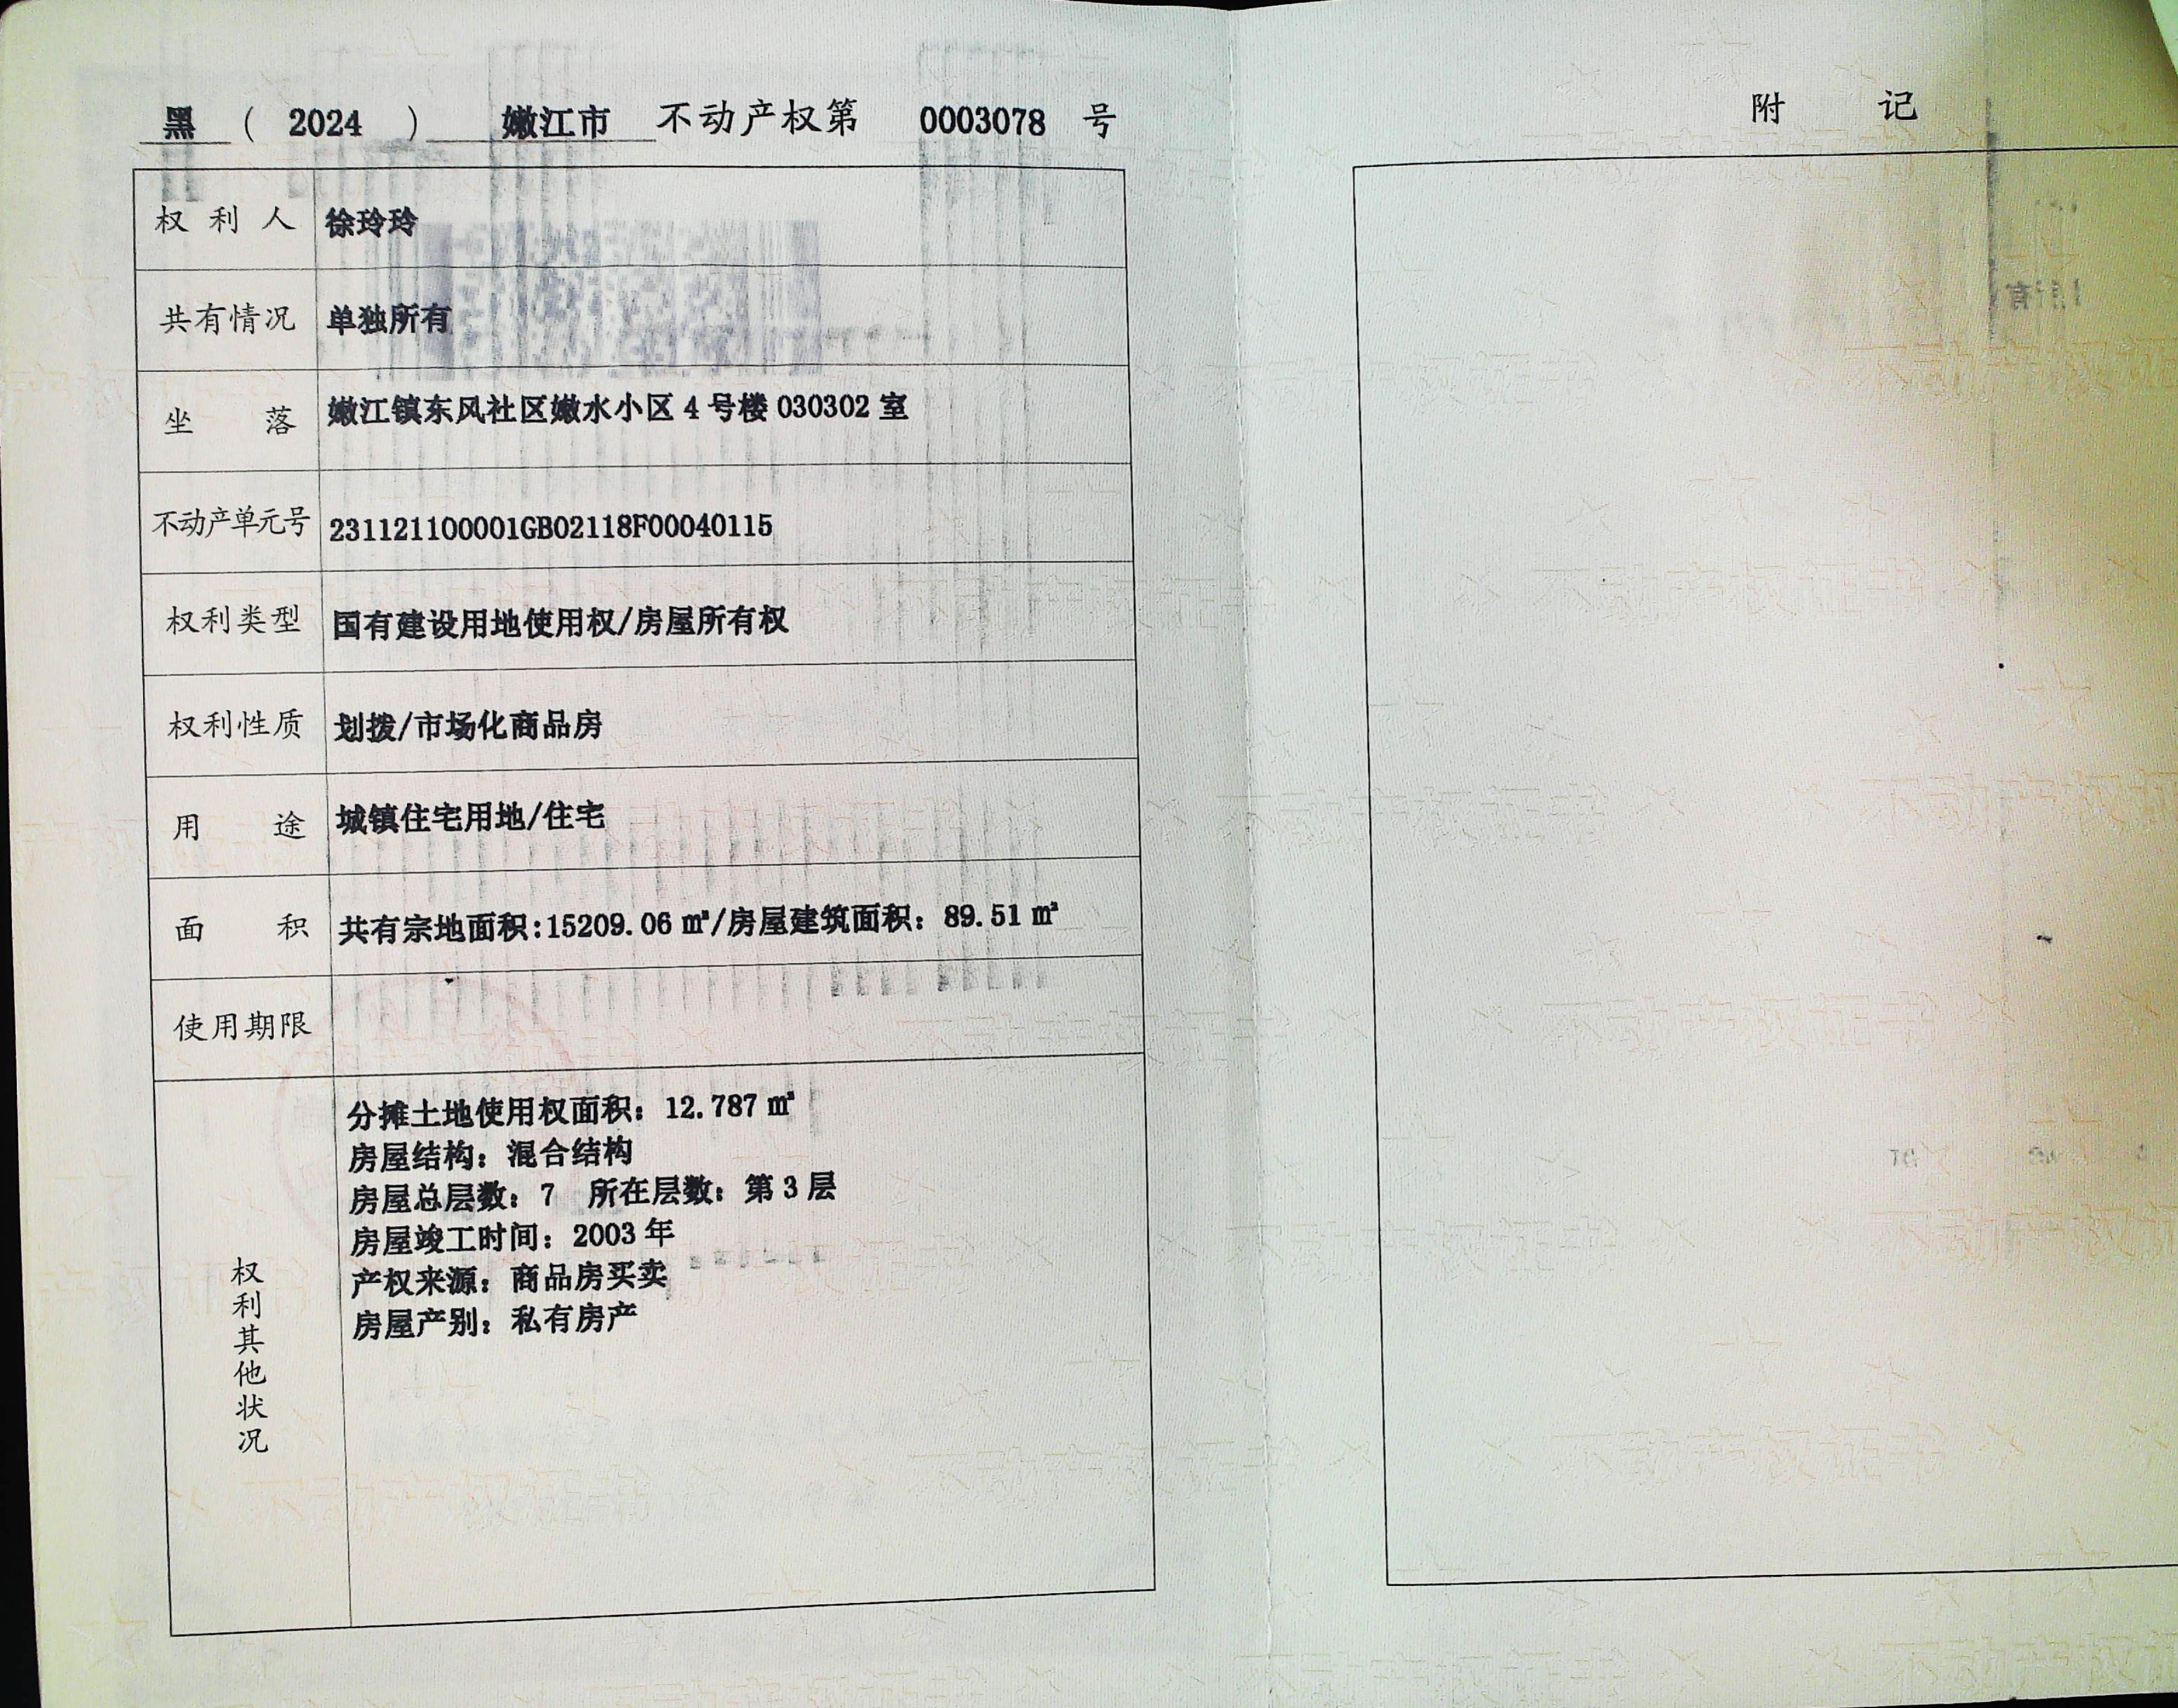 黑 ( 2024 ) 嫩江市 不动产权第 0003078 号
权利人 徐玲玲
共有情况 单独所有
坐落 嫩江镇东风社区嫩水小区 4 号楼 030302 室
不动产单元号 231121100001GB02118F00040115
权利类型 国有建设用地使用权/房屋所有权
权利性质 划拨/市场化商品房
用途 城镇住宅用地/住宅
面积 共有宗地面积:15209.06 ㎡/房屋建筑面积：89.51 ㎡
使用期限
权利其他状况
分摊土地使用权面积：12.787 ㎡
房屋结构：混合结构
房屋总层数：7 所在层数：第 3 层
房屋竣工时间：2003 年
产权来源：商品房买卖
房屋产别：私有房产
附记